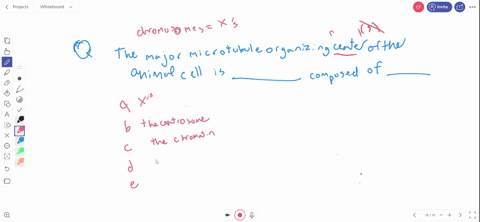 Whiteboard
Invite
chromosomes = X's
Q The major microtubule organizing center of the
animal cell is ________ composed of ________
a X's
b the centrosome
c the chromatin
d
e